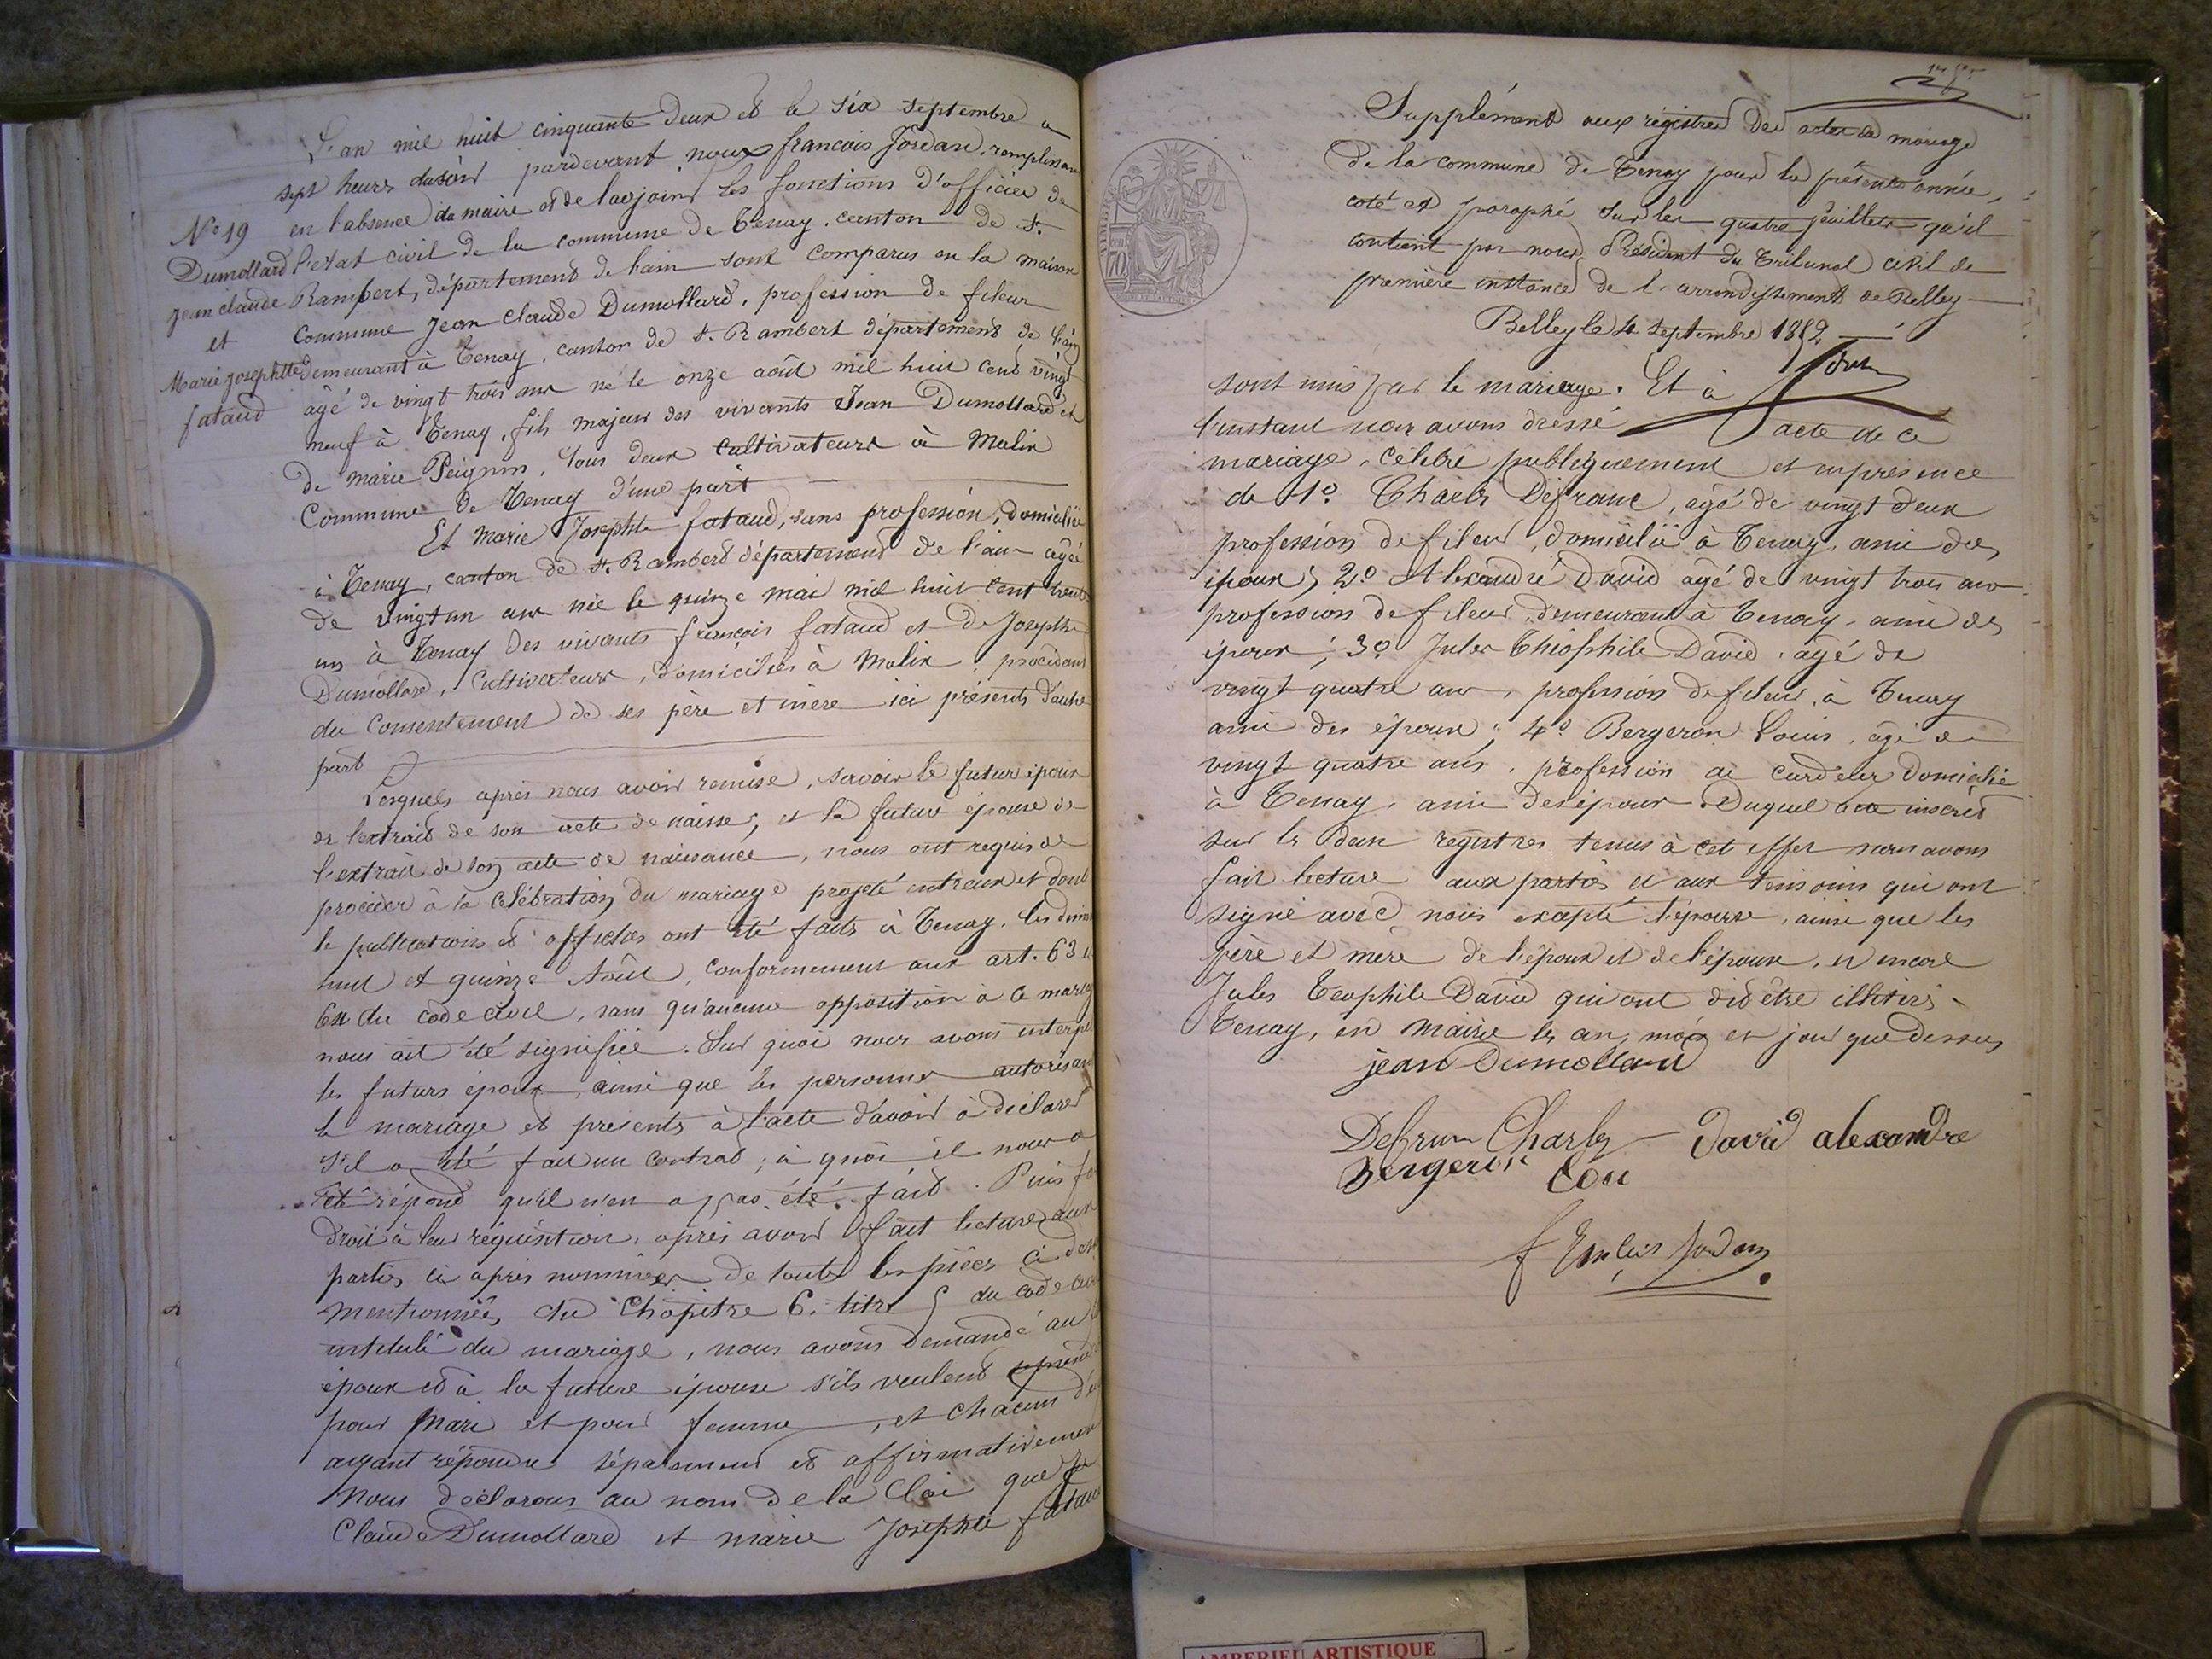 L'an mil huit cinquante deux et le six septembre a
sept heures du soir pardevant nous francois Jordan, remplissant
en l'absence du maire et de l'adjoint les fonctions d'officier de
N° 19
l'etat civil de la commune de Tenay, canton de St
Dumollard
Rambert, département de l'ain sont comparus en la maison
jean claude
commune Jean Claude Dumollard, profession de fileur
et
demeurant à Tenay, canton de St Rambert département de l'ain
Marie josephte
fataud
âgé de vingt trois ans né le onze août mil huit cent vingt
neuf à Tenay, fils majeur des vivants Jean Dumollard et
de marie Peignin, tous deux cultivateurs à Malix
Commune de Tenay d'une part
Et Marie Josephte fataud, sans profession, domiciliée
à Tenay, canton de St. Rambert département de l'ain agée
de vingt un ans née le quinze mai mil huit cent trente
un à Tenay des vivants françois fataud et de Josephte
Dumollard, cultivateurs, domiciliés à Malix, procédant
du consentement de ses père et mère ici présents d'autre
part
Lesquels après nous avoir remise, savoir le futur époux
de l'extrait de son acte de naisse, et la future épouse de
l'extrait de son acte de naissance, nous ont requis de
procéder à la célébration du mariage projeté entr'eux et dont
le publications et affiches ont été faits à Tenay, les dim
huit et quinze Août, conformement aux art. 63 et
64 du code civil, sans qu'aucune opposition à ce mariag
nous ait été signifiée. Sur quoi nous avons interpel
les futurs époux, ainsi que les personnes autorisant
le mariage et presents à l'acte d'avoir à déclarer
s'il a été fait un contrat; à quoi il nous a
été répond qu'il n'en a pas été fait. Puis fa
droit à leur réquisition, après avoir fait lecture aux
parties ci après nommées de toutes les pièces ci des
mentionnées du Chapitre 6. titre 5 du code civ
intitulé du mariage, nous avons demandé au f
époux et à la future épouse s'ils veulent se prend
pour mari et pour femme, et chacun d'e
ayant répondu séparement et affirmativement
Nous déclarons au nom de la Loi que Je
Claude Dumollard et marie Josephte fataud
Supplément aux régistres des actes de mariage
de la commune de Tenay pour la présente année,
coté et paraphé sur les quatre feuillets qu'il
contient par nous, Président du Tribunal civil de
première instance de l'arrondissement de Belley
Belley le 4 septembre 1852
sont unis par le mariage. Et à
l'instant nous avons dressé acte de ce
mariage, célébré publiquement et en présence
de 1° Charles Défranc, agé de vingt deux
profession de fileur, domicilié à Tenay, ami des
époux; 2° Alexandré David agé de vingt trois ans
profession de fileur, demeurant à Tenay, ami des
époux; 3° Jules Théophile David, agé de
vingt quatre ans, profession de fileur, à Tenay
ami des époux; 4° Bergeron Louis, agé de
vingt quatre ans, profession de cardeur domicilié
à Tenay, ami des époux. Duquel acte inscrit
sur les deux registres tenus à cet effet nous avons
fait lecture aux parties et aux témoins qui ont
signé avec nous excepté l'épouse, ainsi que les
père et mère de l'époux et de l'épouse, et encore
Jules Teophile David qui ont dit être illétirés
Tenay, en Mairie les an, mois et jour que dessus
jean Dumollard
Defrun Charles David alexandre
Bergeron Loui
françois Jordan
AMBERIEU ARTISTIQUE